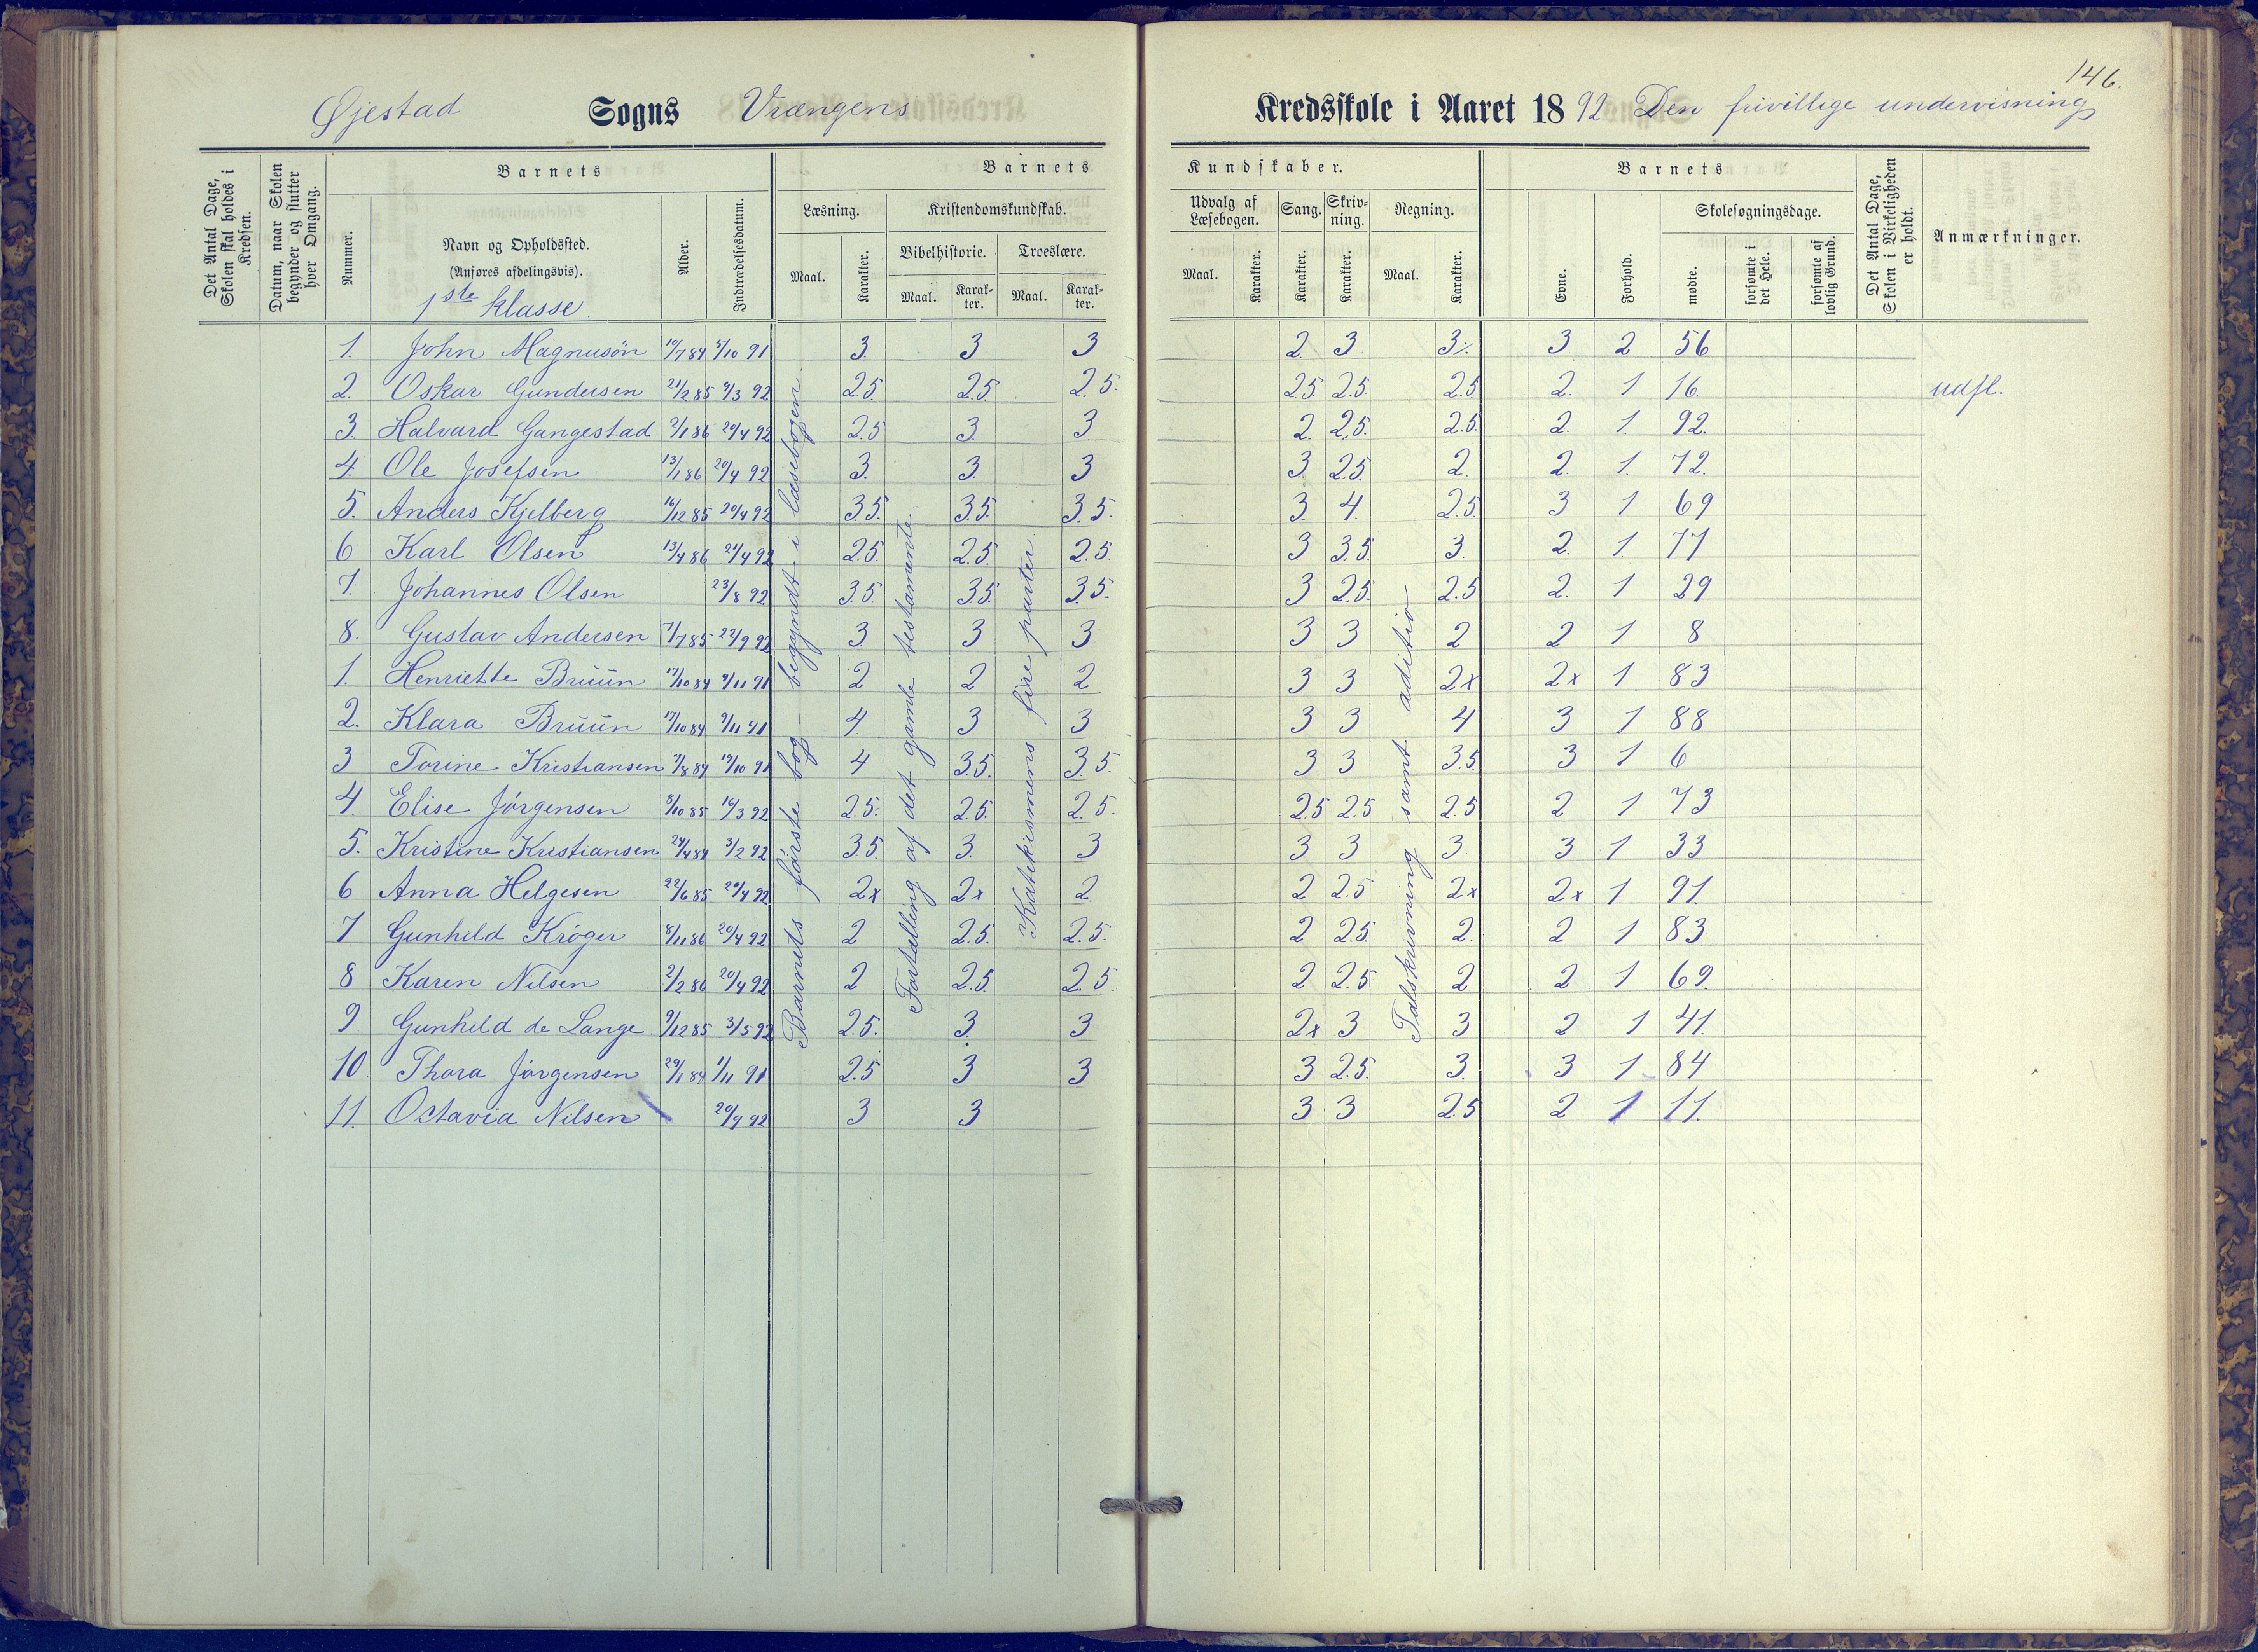 146.
Øjestad Sogns Vrængens Kredsskole i Aaret 1892 Den frivillige undervisning
Det Antal Dage, Skolen skal holdes i Kredsen.
Datum, naar Skolen begynder og slutter hver Omgang.
Barnets
Nummer.
Navn og Opholdssted.
(Anføres afdelingsvis).
1ste klasse
Alder.
Indtrædelsesdatum.
Barnets Kundskaber.
Læsning.
Maal.
Karakter.
Kristendomskundskab.
Bibelhistorie.
Maal.
Karakter.
Troeslære.
Maal.
Karakter.
Udvalg af Læsebogen.
Maal.
Karakter.
Sang.
Karakter.
Skrivning.
Karakter.
Regning.
Maal.
Karakter.
Barnets
Evne.
Forhold.
Skolesøgningsdage.
mødte.
forsømte i det Hele.
forsømte af lovlig Grund.
Det Antal Dage, Skolen i Virkeligheden er holdt.
Anmærkninger.
1. John Magnusön 10/7 84 5/10 91 3. 3 3 2. 3. 3 3 2 56
2. Oskar Gundersen 21/2 85 9/3 92 2.5. 2.5. 2.5. 2.5 2.5. 2.5 2. 1 16. udfl.
3. Halvard Gangestad 2/1 86 20/4 92 2.5 3. 3 2. 2.5. 2.5. 2. 1. 92.
4. Ole Josefsen 13/1 86 20/4 92 3. 3. 3 3. 2.5. 2. 2. 1. 72.
5. Anders Kjelberg 16/12 85 20/4 92 3.5. 3.5. 3.5. 3. 4. 2.5. 3 1 69
6 Karl Olsen 13/4 86 21/4 92 2.5. 2.5. 2.5. 3 3.5. 3. 2. 1. 77
7. Johannes Olsen 23/8 92 3.5. 3.5. 3.5. 3 2.5. 2.5 2. 1 29
8. Gustav Andersen 7/7 85 22/9 92 3 3 3 3 3 2 2 1 8
1. Henriette Bruün 17/10 84 9/11 91 2 2 2 3 3 2x 2x 1 83
2. Klara Bruün 17/10 84 9/11 91 4 3 3 3 3 4 3 1 88
3 Torine Kristiansen 7/8 84 19/10 91 4 3.5. 3.5. 3 3 3.5 3 1 6
4. Elise Jörgensen 8/10 85 16/3 92 2.5. 2.5. 2.5. 2.5 2.5 2.5 2 1 73
5. Kristine Kristiansen 24/4 84 3/2 92 3.5. 3. 3 3 3 3 3 1 33
6 Anna Helgesen 22/6 85 20/4 92 2x 2x 2. 2 2.5 2x 2x 1 91.
7 Gunhild Kröger 8/11 86 20/4 92 2 2.5. 2.5. 2 2.5. 2. 2 1 83
8 Karen Nilsen 2/2 86 20/4 92 2 2.5 2.5. 2 2.5 2 2 1 69.
9 Gunhild de Lange 9/12 85 3/5 92 2.5. 3. 3 2x 3 3 2 1 41.
10 Thora Jörgensen 29/1 84 1/11 91 2.5 3 3 3 2.5. 3. 3 1 84
11. Octavia Nilsen 20/9 92 3 3 3 3 2.5 2 1 11.
Barnets förste bog - begyndt i læsebogen.
Fortælling af det gamle testamente.
Katekismens fire parter.
Talskrivning samt aditio